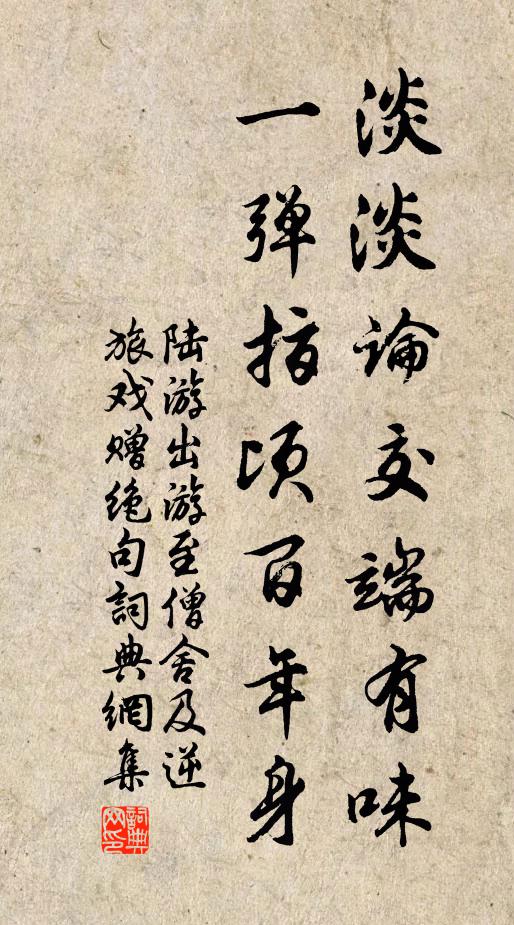 淡淡論交端有味
一弹指顷百年身
陆游出游至僧舍及逆
旅戏赠绝句詞典網集
詞典
网印